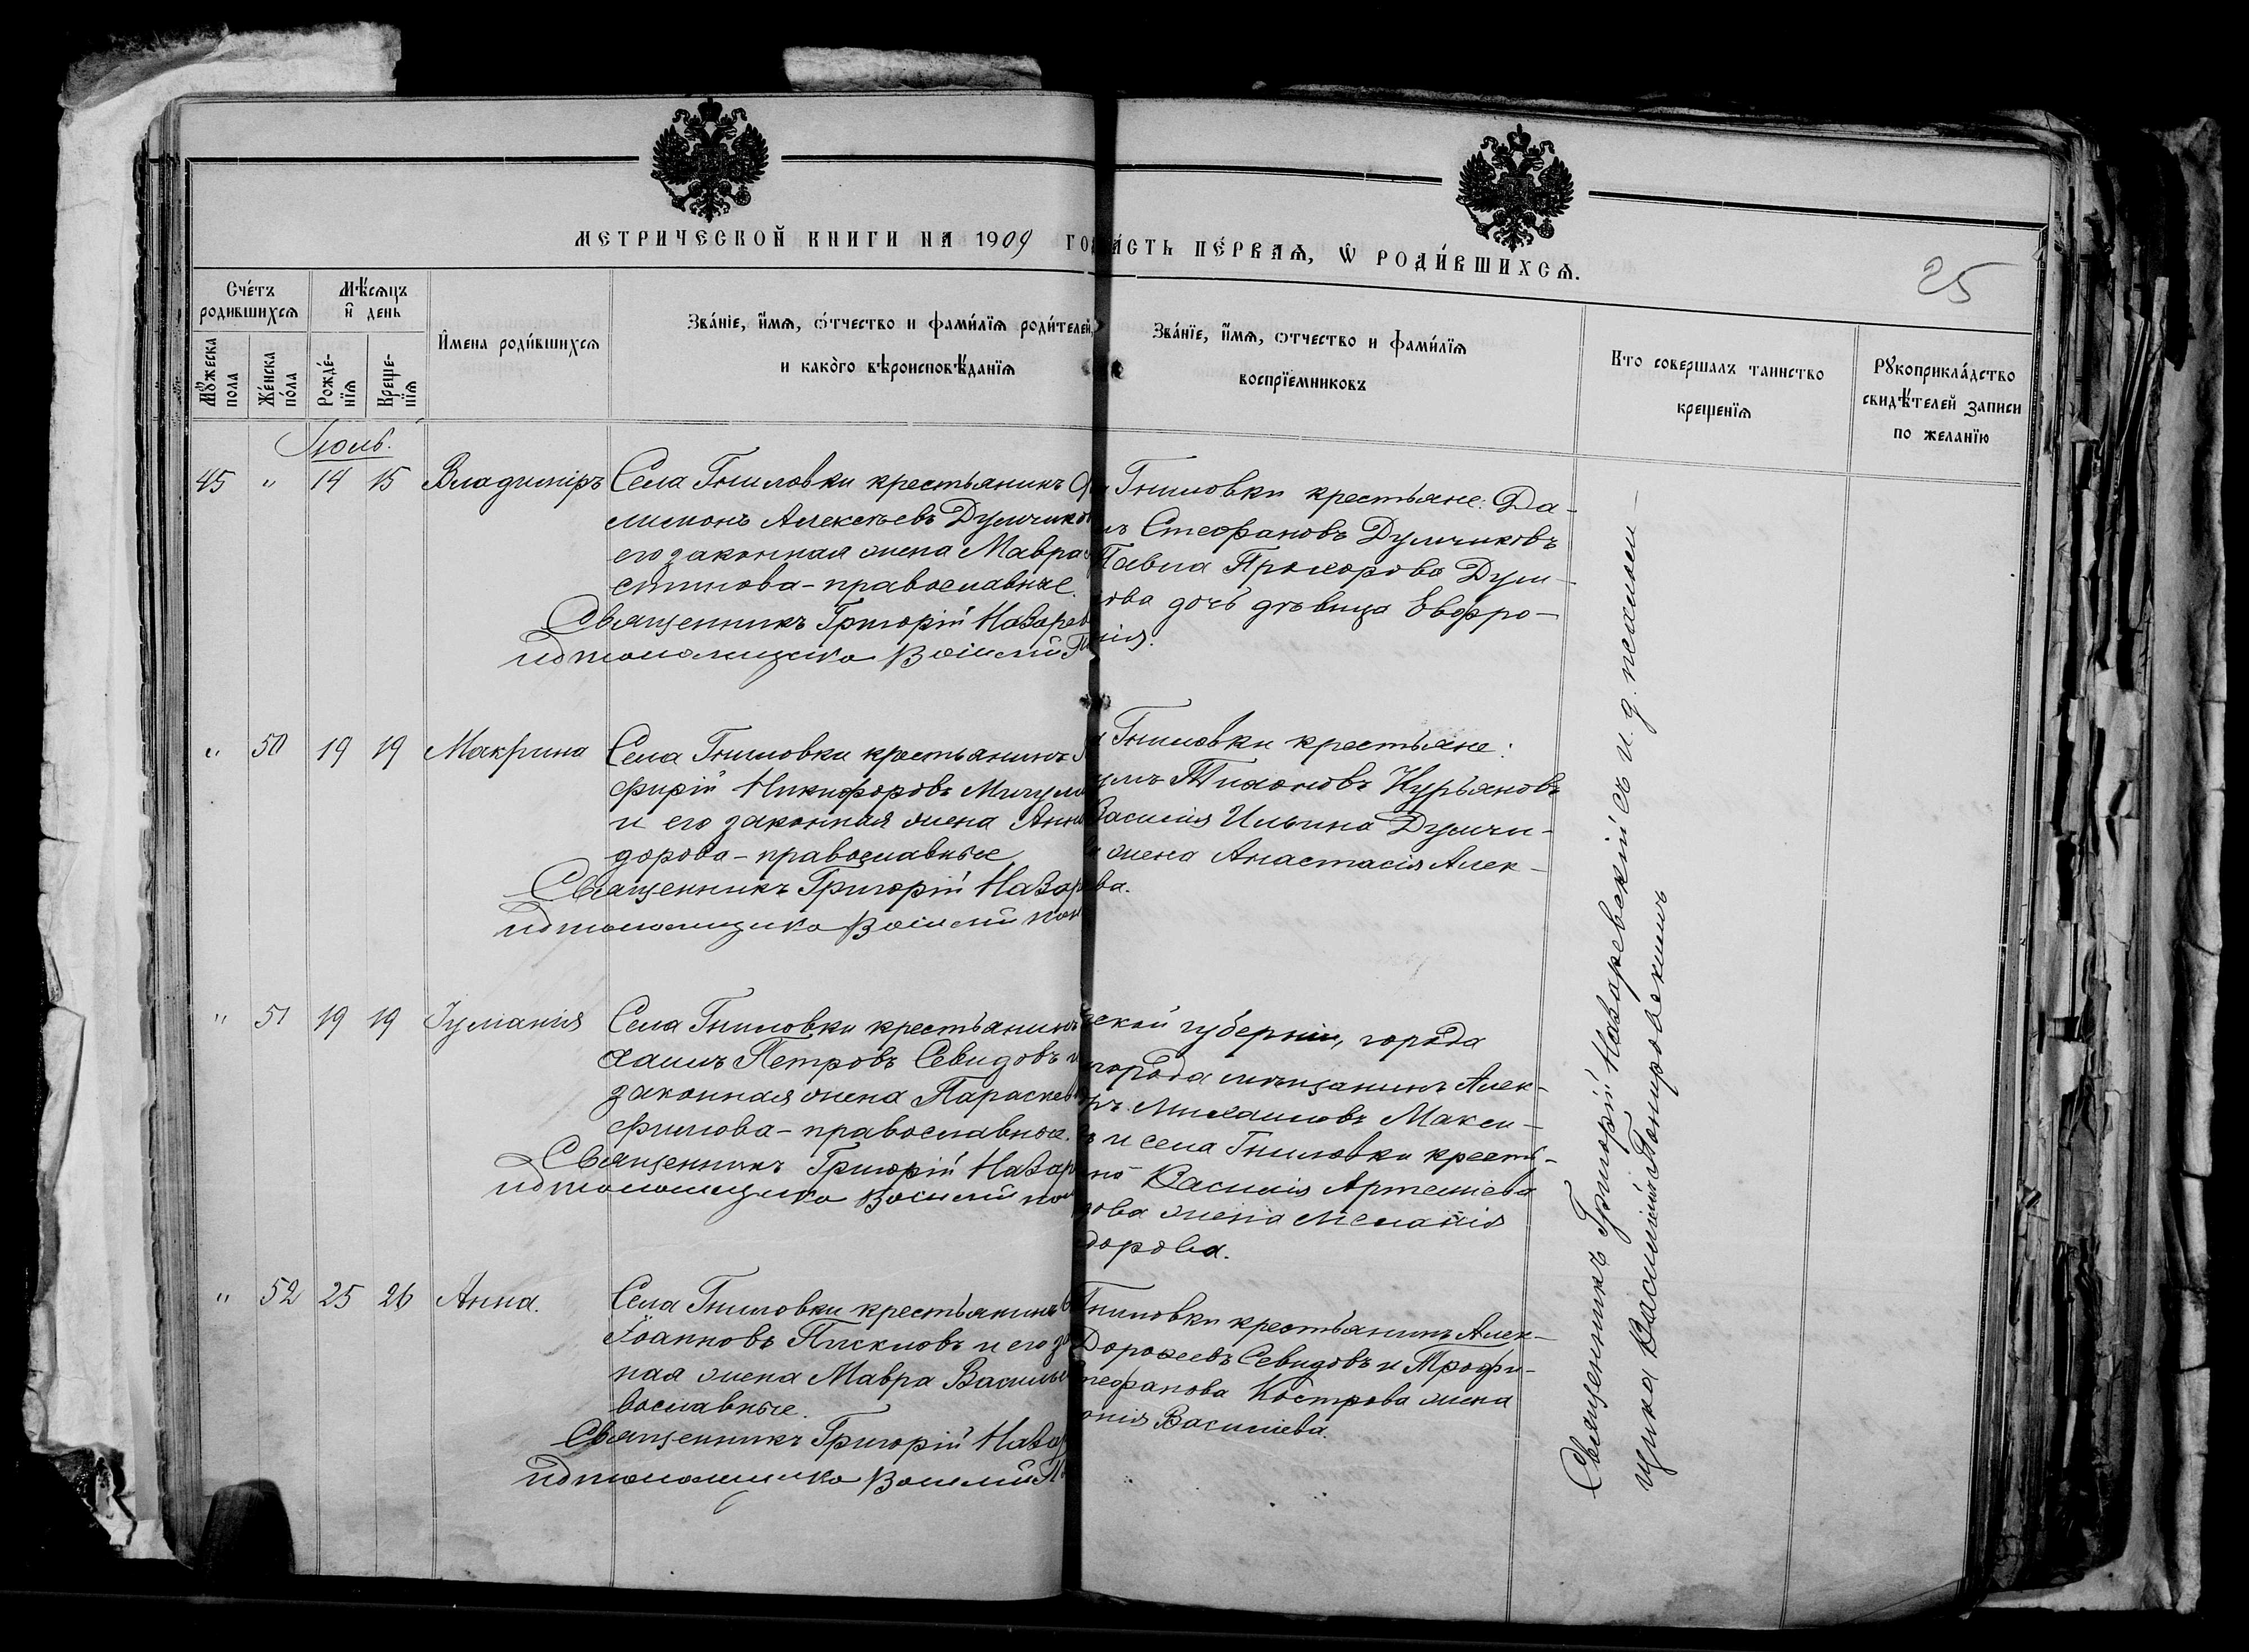 МЕТРИЧЕСКОЙ КНИГИ НА 1909 ГО
ЧАСТЬ ПЕ́РВАѦ, Ѡ РОДИ́ВШИХСѦ.
25
Сче́тъ родившихсѧ
Мѣ́сѧцъ и день
Мꙋ́жеска пола
Же́нска по́ла
Рожде́-нїѧ
Креще-нїѧ
И́мена роди́вшихсѧ
Зва́нїе, и́мѧ, ѻ́тчество и фами́лїѧ роди́телей,
и како̀го вѣроисповѣ́данїѧ
Зва́нїе, и́мѧ, ѻтчество и фами́лїѧ
воспрїемниковъ
Кто совершалъ таинство
крещенїѧ
Рꙋкоприкла́дство
свидѣ́телей записи
по желанїю
Іюль.
45 " 14 15 Владиміръ
Села Гниловки крестьянинъ Фи
лимонъ Алексѣевъ Думчиков
его законная жена Мавра
стинова - православные.
Священникъ Григорій Назарев
Псаломщика Василій П
Гниловки крестьяне: Да-
лъ Стефановъ Думчиковъ
Павла Прохорова Дум-
кова дочь дѣвица Евфро-
нія.
" 50 19 19 Макрина
Села Гниловки крестьянинъ
фирій Никифоровъ Мигун
и его законная жена Анна
дорова - православные
Священникъ Григорій Назар
Псаломщика Василій Пон
Гниловки крестьяне:
умъ Тихоновъ Курьяновъ
Василія Ильина Думчи-
жена Анастасія Алек-
ва.
" 51 19 19 Іуліанія
Села Гниловки крестьянинъ
хаилъ Петровъ Севидовъ и
законная жена Параскев
фимова - православные.
Священникъ Григорій Назар
Псаломщика Василій Пон
ской губерніи, города
города мѣщанинъ Алек-
ръ Михаиловъ Макси-
въ и села Гниловки кресть-
Василія Артеміева
дова жена Меланія
дорова.
" 52 25 26 Анна.
Села Гниловки крестьянинъ
Іоанновъ Пискловъ и его за
ная жена Мавра Василье
вославные.
Священникъ Григорій Назар
Псаломщика Василій П
Гниловки крестьянинъ Алек-
Дорофеевъ Севидовъ и Трофи-
тефанова Кострова жена
онія Василіева.
Священникъ Григорій Назаревскій съ и. д. псалом-
щика Василіемъ Понировскимъ